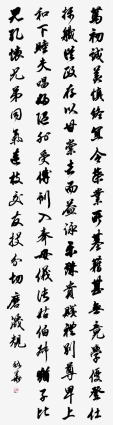 篤初誠美慎終宜令榮業所基藉甚無竟學優登仕
攝職從政存以甘棠去而益詠樂殊貴賤禮別尊卑上
和下睦夫唱婦隨外受傅訓入奉母儀諸姑伯叔猶子比
兒孔懷兄弟同氣連枝交友投分切磨箴規